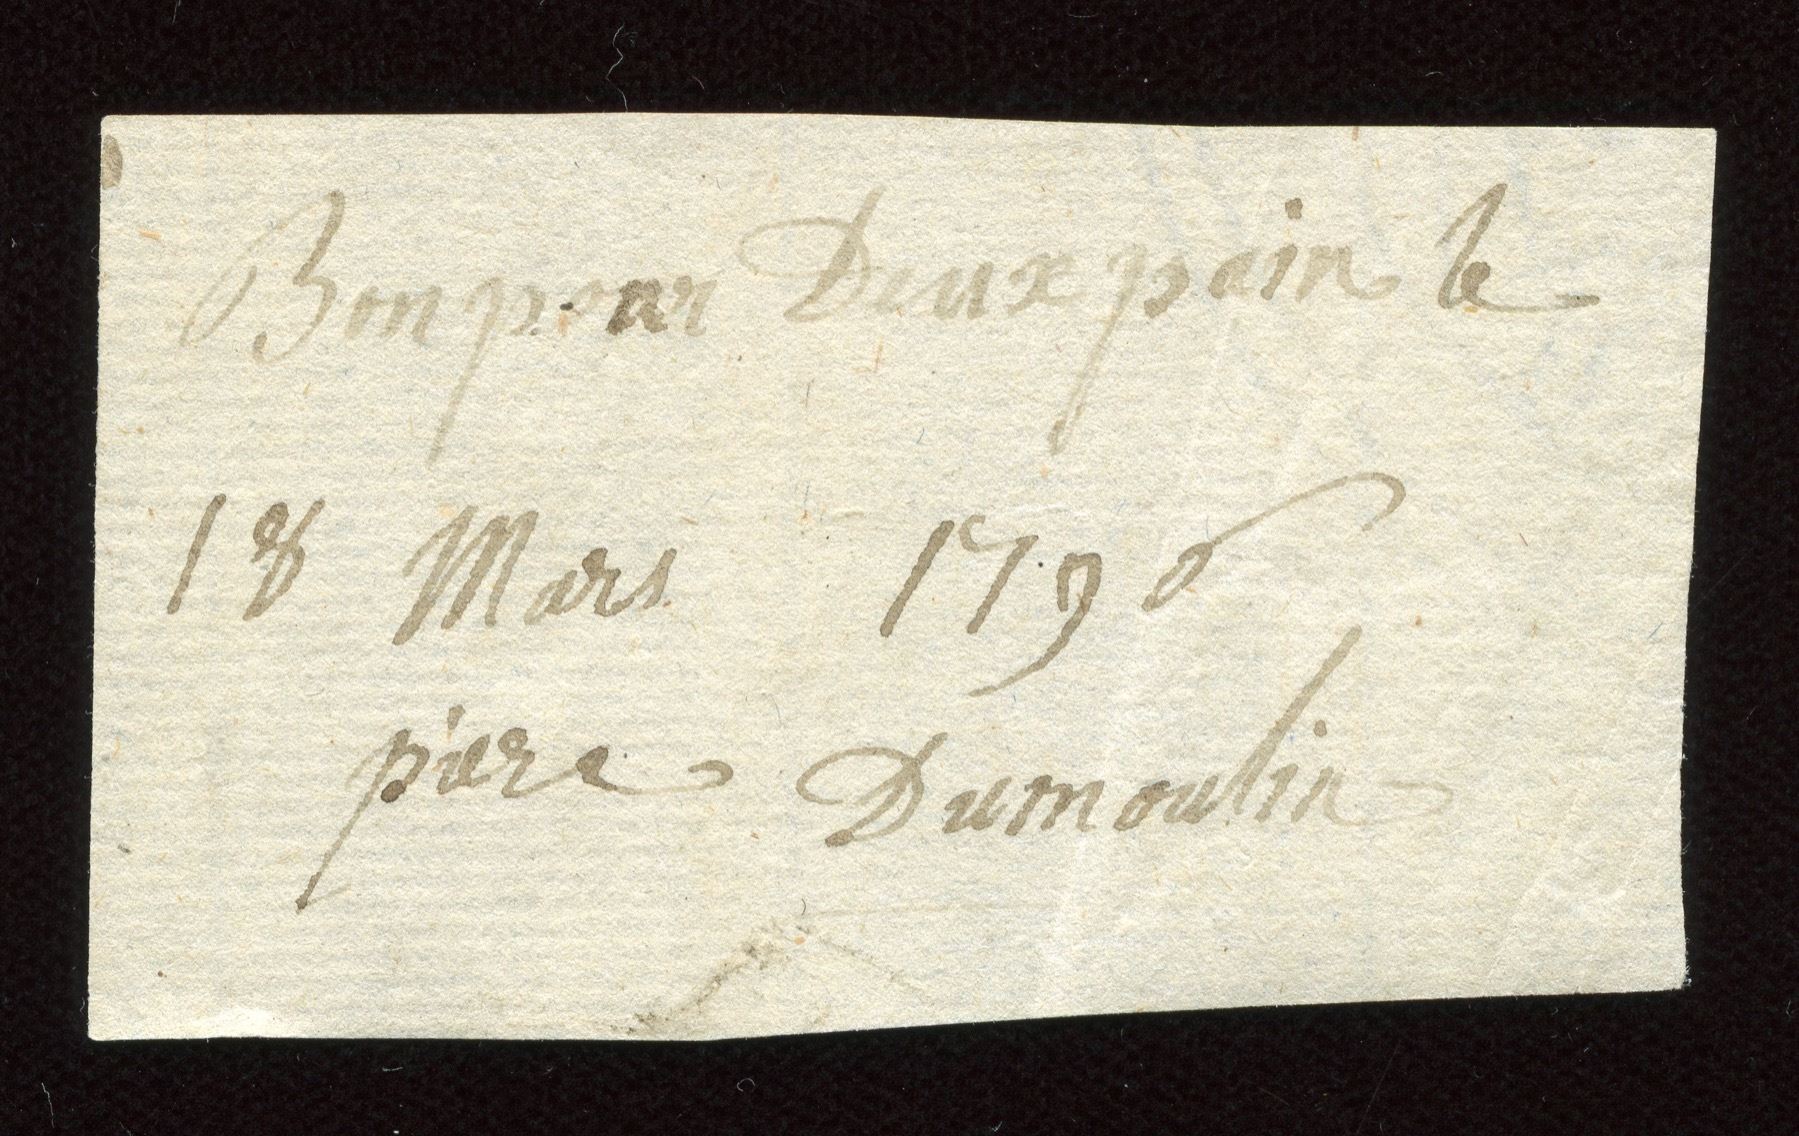 Bon pour Deux pain le
18 Mars 1796
piere Dumoulin